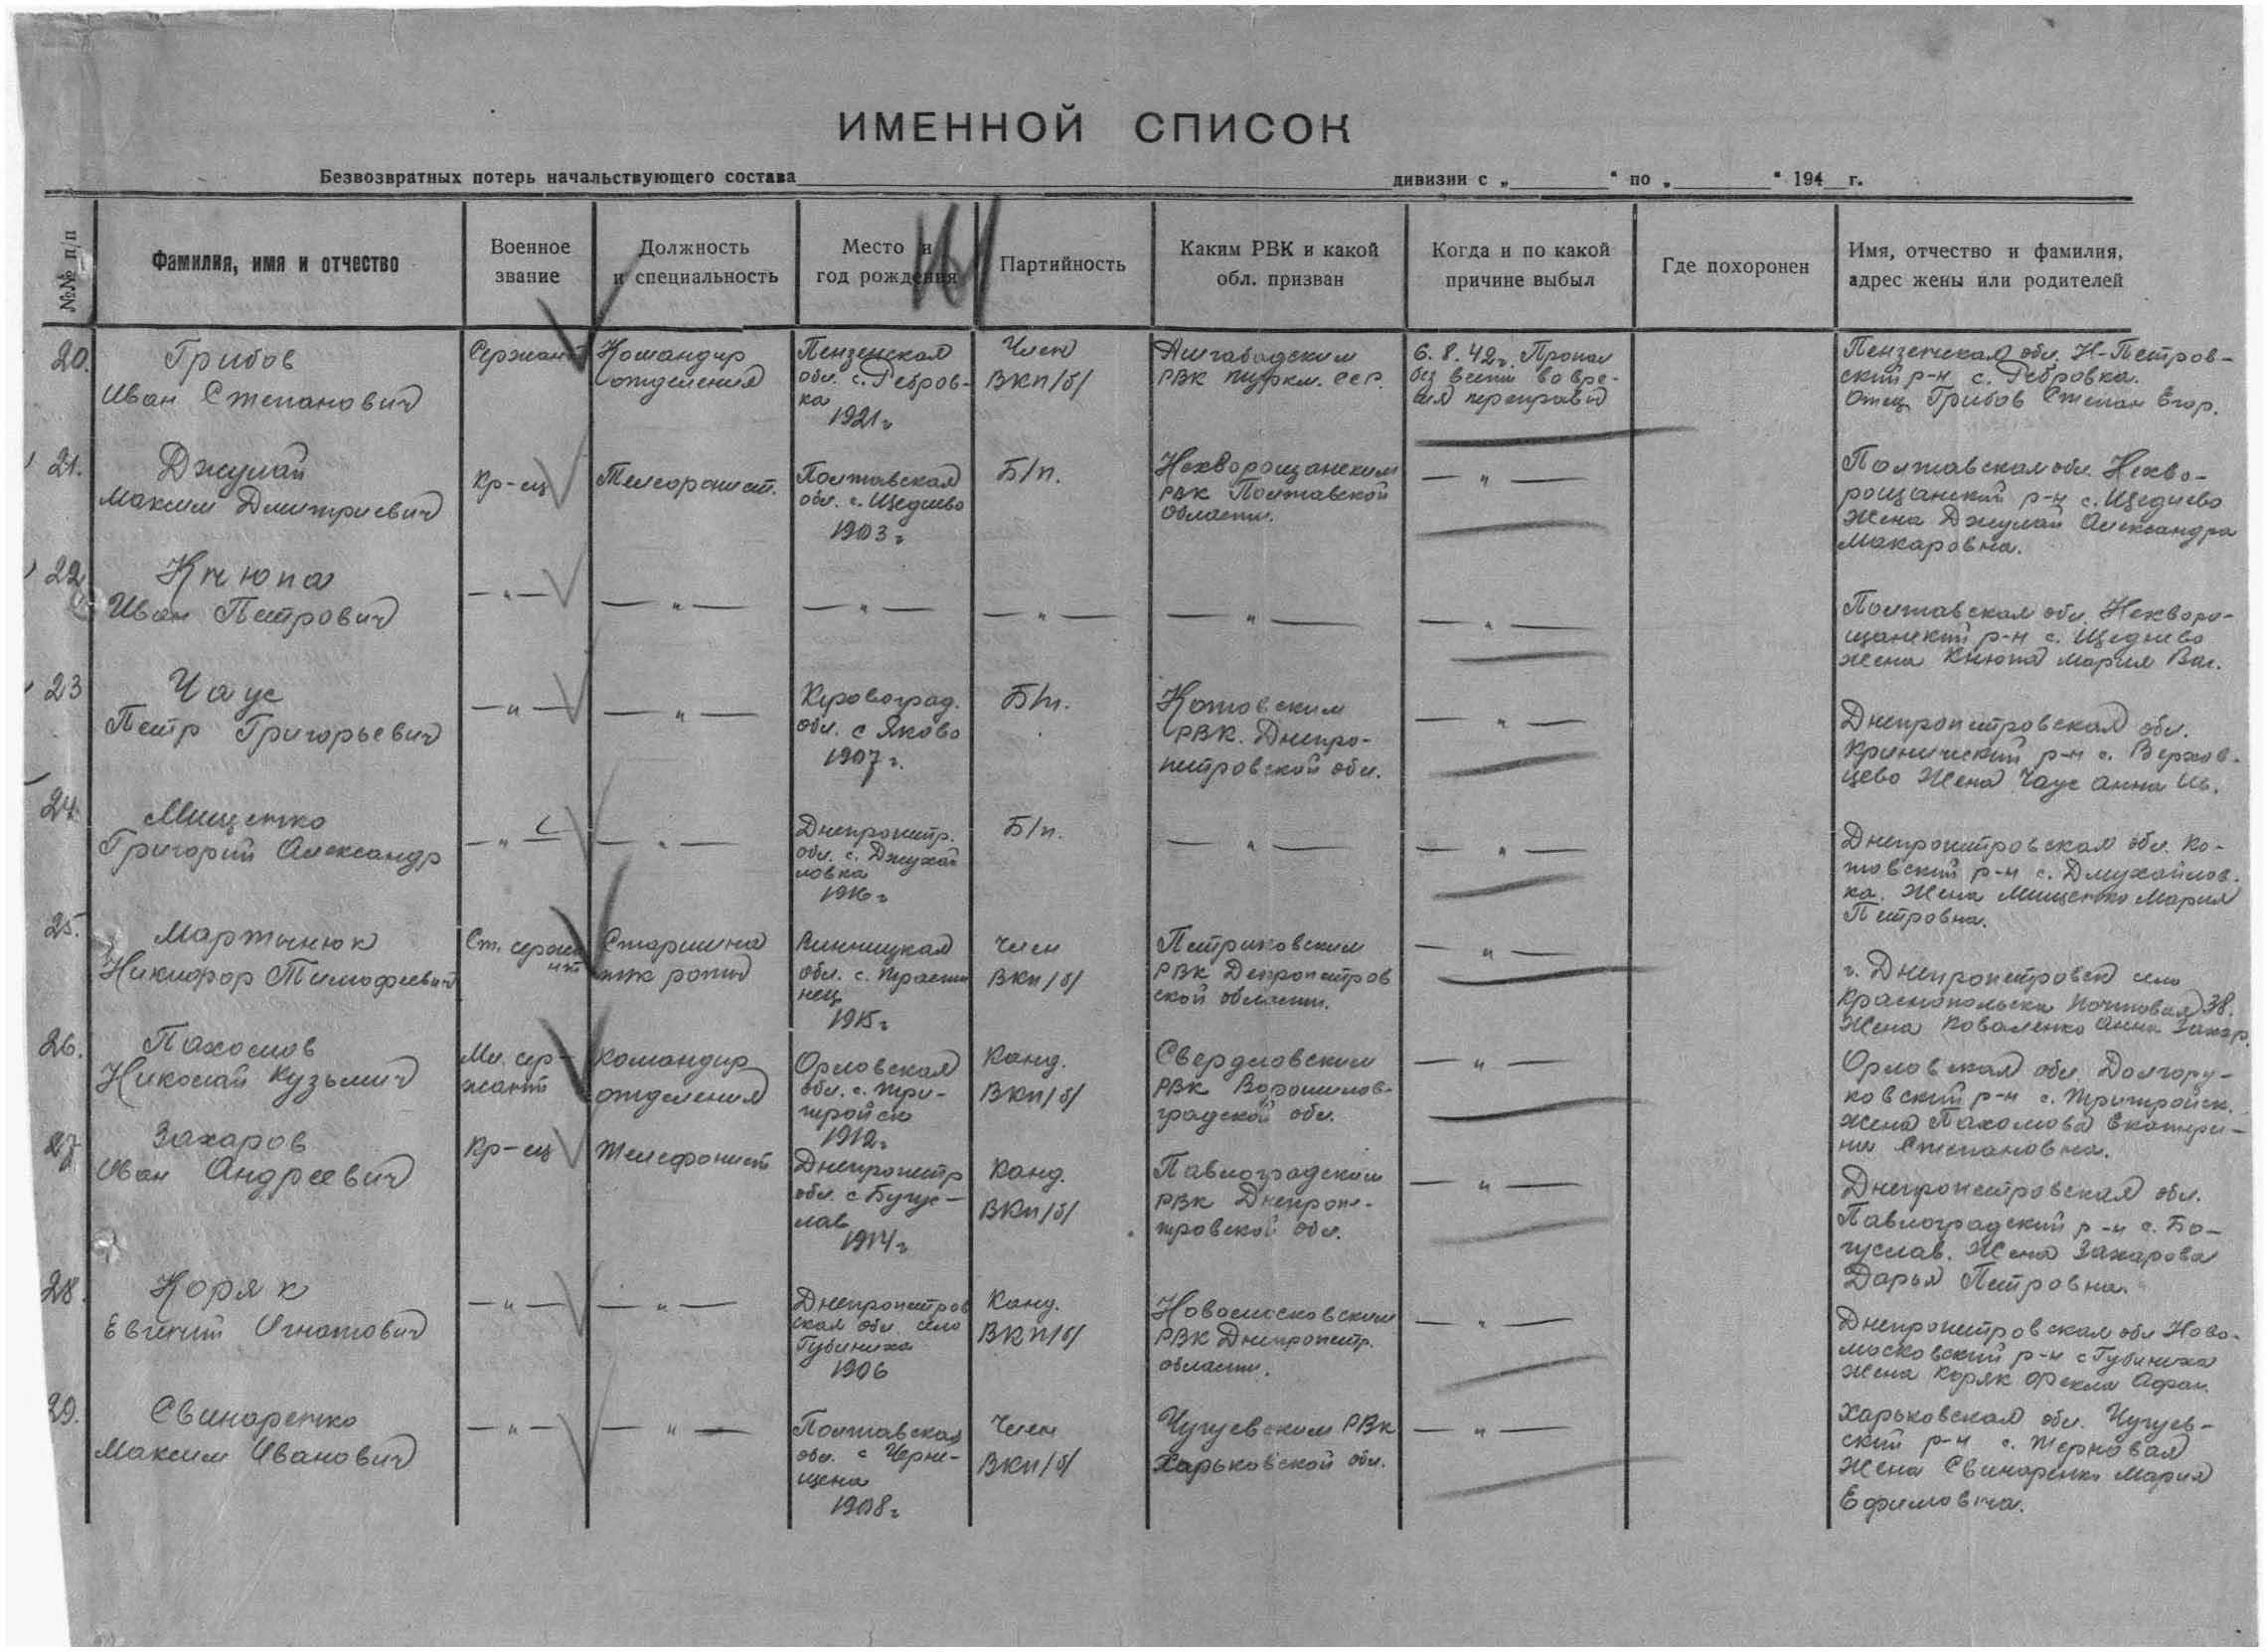 ИМЕННОЙ СПИСОК
Безвозвратных потерь начальствующего состава дивизии с „ " по „ " 194 г.
№№ п/п
Фамилия, имя и отчество
Военное
звание
Должность
и специальность
Место и
год рождения
Партийность
Каким РВК и какой
обл. призван
Когда и по какой
причине выбыл
Где похоронен
Имя, отчество и фамилия,
адрес жены или родителей
20.
Грибов
Иван Степанович
Сержант
Командир
отделения
Пензенская
обл. с. Ребров-
ка
1921г
Член
ВКП/б/
Ашгабадским
РВК Туркм. ССР.
6.8.42г. Пропал
без вести во вре-
мя переправы
Пензенская обл. Н-Петров-
ский р-н с. Ребровка.
Отец Грибов Степан Егор.
21.
Джулай
Максим Дмитриевич
Кр-ец
Телефонист.
Полтавская
обл. с. Щедиево
1903г
Б/п.
Нехворощанским
РВК Полтавской
области.
— " —
Полтавская обл. Нехво-
рощанский р-н с. Щедиево
Жена Джулай Александра
Макаровна.
22
Кнюпа
Иван Петрович
— " —
— " —
— " —
— " —
— " —
— " —
Полтавская обл. Нехворо-
щанский р-н с. Щедиево
жена Кнюпа Мария Вас.
23
Чаус
Петр Григорьевич
— " —
— " —
Кировоград.
обл. с Яково
1907г.
Б/п.
Котовским
РВК. Днепро-
петровской обл.
— " —
Днепропетровская обл.
Криничский р-н с. Верхов-
цево Жена Чаус Анна Ив.
24.
Мищенко
Григорий Александр
— " —
— " —
Днепропетр.
обл. с. Джухай
ловка
1916г
Б/п.
— " —
— " —
Днепропетровская обл. Ко-
товский р-н с. Дмухайлов-
ка. Жена Мищенко Мария
Петровна.
25.
Мартынюк
Никифор Тимофеевич
Ст. сержа
нт
Старшина
роты
Винницкая
обл. с.
нец
1915г
Член
ВКп/б/
Петриковским
РВК Депропетров
ской области.
— " —
г. Днепропетровск село
Краснопольска Почтовая 38.
Жена Коваленко Анна Захар.
26.
Пахомов
Николай Кузьмич
Мл. сер-
жант
Командир
отделения
Орловская
обл. с. Три-
тройск
1912г
Канд.
ВКп/б/
Свердловским
РВК Ворошилов-
градской обл.
— " —
Орловская обл Долгору-
ковский р-н с. Тритройск.
жена Пахомова Екатери-
на Степановна.
27.
Захаров
Иван Андреевич
Кр-ец
Телефонист
Днепропетр
обл. с Бугус-
лав
1914г
Канд.
ВКп/б/
Павлоградским
РВК Днепропе-
тровской обл.
— " —
Днепропетровская обл.
Павлоградский р-н с. Бо-
гуслав. Жена Захарова
Дарья Петровна.
28.
Коряк
Евгений Игнатович
— " —
— " —
Днепропетров
ская обл село
Губиниха
1906
Канд.
ВКП/б/
Новомосковским
РВК Днепропетр.
области.
— " —
Днепропетровская обл Ново-
московский р-н с Губиниха
Жена Коряк Фекла Афан.
29.
Свинаренко
Максим Иванович
— " —
— " —
Полтавская
обл. с Черне-
щена
1908г
Член
ВКп/б/
Чугуевским РВК
Харьковской обл.
— " —
Харьковская обл. Чугуев-
ский р-н с. Терновая
Жена Свинаренко Мария
Ефимовна.